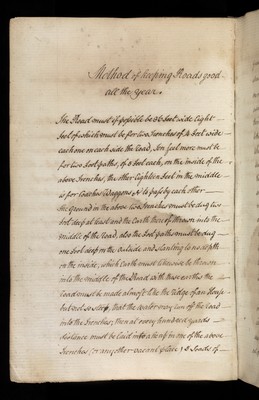 Method of keeping Roads good
all the year.
The Road must if possible be 36 feet wide Eight
feet of which must be for two Trenches of 4 feet wide
each one on each side the Road, Ten feet more must be
for two foot paths, of 5 feet each, on the inside of the
above Trenches, the other Eighteen feet in the middle
is for Coaches Waggons, &c to pass by each other
the Ground in the above two Trenches must be dug two
feet deep at least and the Earth thereof thrown into the
middle of the Road, also the foot paths must be dug
one foot deep on the outside and slanting to no depth
on the inside, which Earth must likewise be thrown
into the middle of the Road with these earths the
Road must be made almost like the Ridge of an House
but not so steep, that the water may run off the Road
into the Trenches; then at every hundred yards
distance must be laid into a heap in one of the above
Trenches, or any other vacant place Loads of